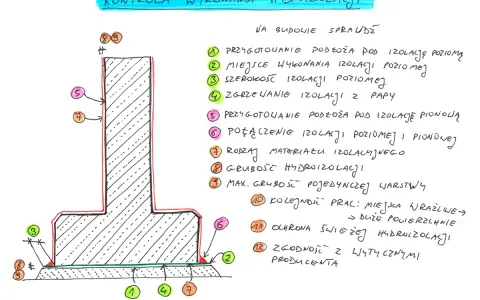 KONTROLA WYKONANIA HYDROIZOLACJI
NA BUDOWIE SPRAWDŹ
1 PRZYGOTOWANIE PODŁOŻA POD IZOLACJĘ POZIOMĄ
2 MIEJSCE WYKONANIA IZOLACJI POZIOMEJ
3 SZEROKOŚĆ IZOLACJI POZIOMEJ
4 ZGRZEWANIE IZOLACJI Z PAPY
5 PRZYGOTOWANIE PODŁOŻA POD IZOLACJĘ PIONOWĄ
6 POŁĄCZENIE IZOLACJI POZIOMEJ I PIONOWEJ
7 RODZAJ MATERIAŁU IZOLACYJNEGO
8 GRUBOŚĆ HYDROIZOLACJI
9 MAX. GRUBOŚĆ POJEDYNCZEJ WARSTWY
10 KOLEJNOŚĆ PRAC: MIEJSKA WRAŻLIWE →
→ DUŻE POWIERZCHNIE
11 OCHRONA ŚWIEŻEJ HYDROIZOLACJI
12 ZGODNOŚĆ Z WYTYCZNYMI
PRODUCENTA
8 9
5
7
3
6
2
8
9
1 4 7